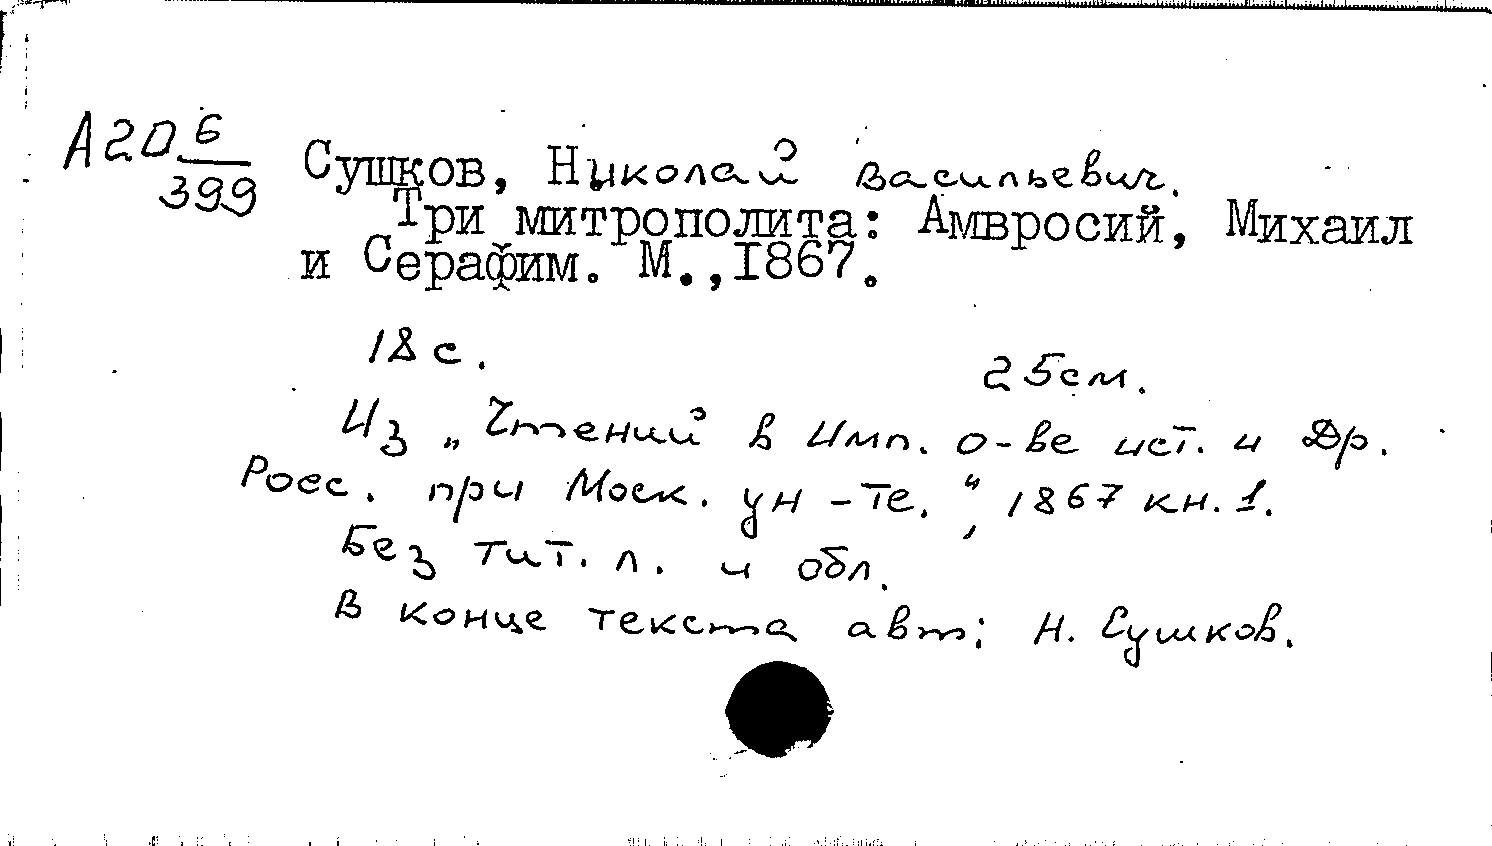 А20 6/399
Сушков, Николай Васильевич.
Три митрополита: Амвросий, Михаил
и Серафим. М.,1867.
18 с.
25см.
Из „Чтений в Имп. о-ве ист. и Др.
Росс. при Моск. ун-те.“, 1867 кн. 1.
Без тит. л. и обл.
В конце текста авт: Н. Сушков.